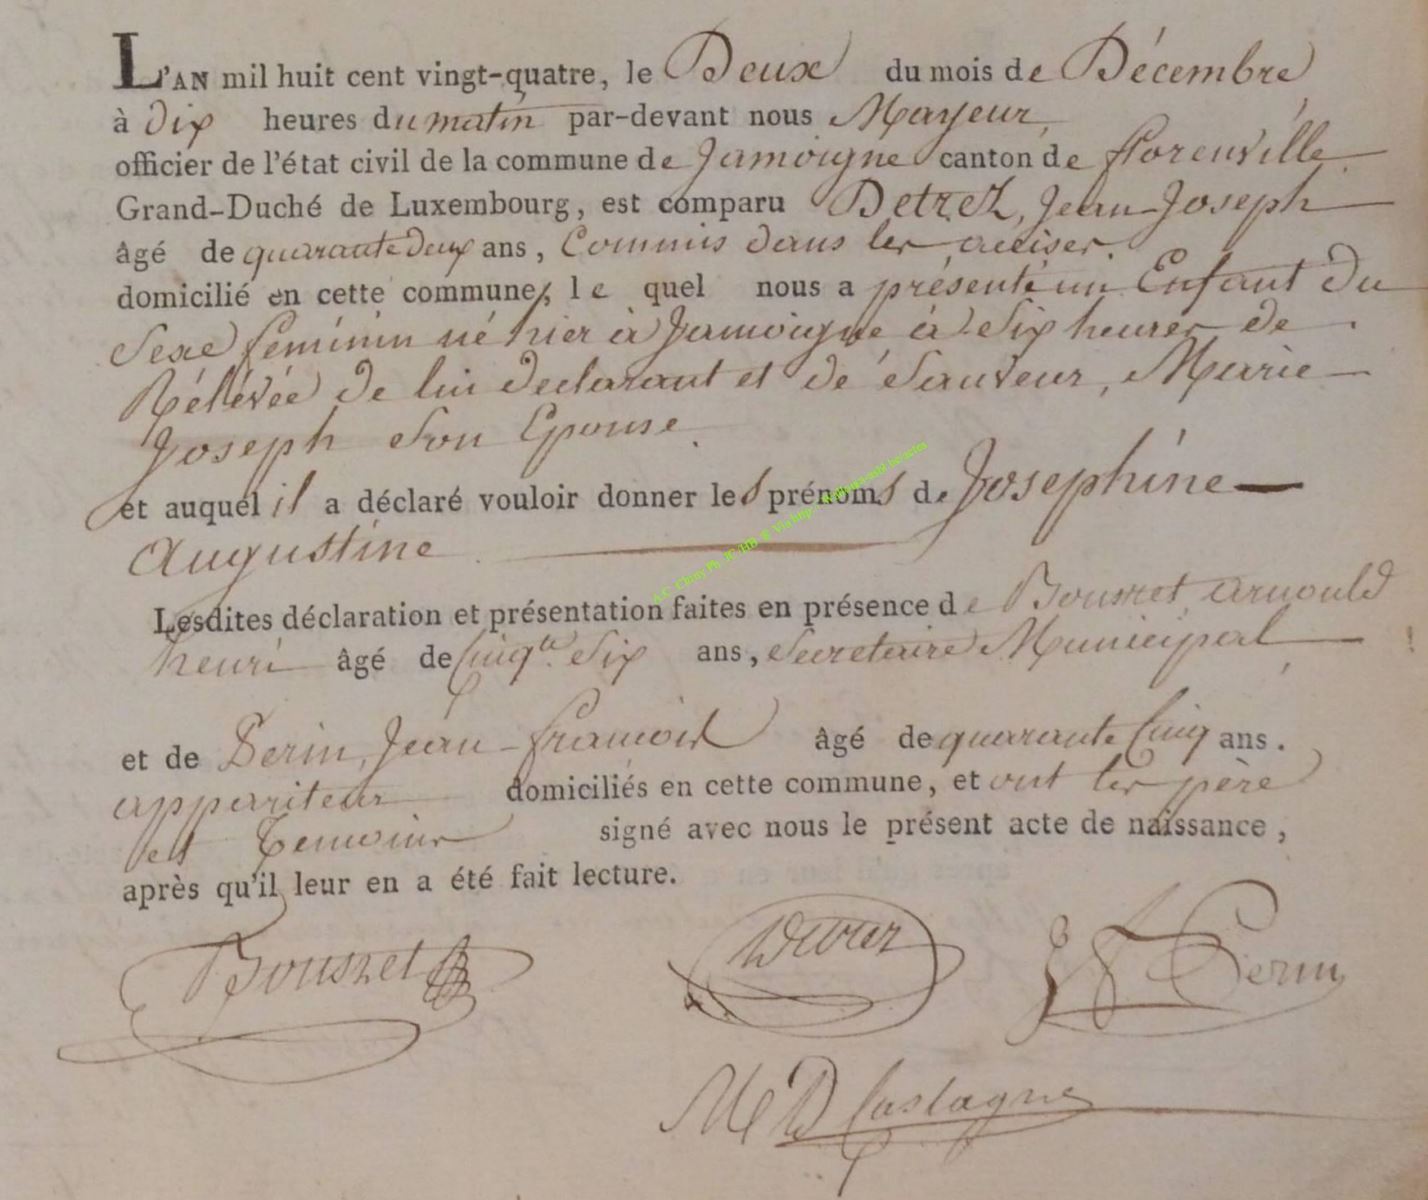 L'AN mil huit cent vingt-quatre, le Deux du mois de Décembre
à dix heures du matin par-devant nous Mayeur,
officier de l'état civil de la commune de Jamoigne canton de florenville
Grand-Duché de Luxembourg, est comparu Detrez, Jean-Joseph
âgé de quarante deux ans, Commis dans les accises.
domicilié en cette commune, le quel nous a présenté un Enfant du
Sexe féminin né hier à Jamoigne à Six heures de
Rélévée de lui declarant et de Sauveur, Marie
Joseph Son Epouse.
et auquel il a déclaré vouloir donner les prénoms de Josephine
Augustine
Lesdites déclaration et présentation faites en présence de Bouszet, arnould
henri âgé de Cinqte Six ans, Secretaire Municipal,
et de Perin, Jean-françois âgé de quarante Cinq ans.
appariteur domiciliés en cette commune, et ont les père
et Temoins signé avec nous le présent acte de naissance,
après qu'il leur en a été fait lecture.
Bouszet Detrez J F Perin
Castagne
A.C. Chiny Ph. JC/HB © Via http